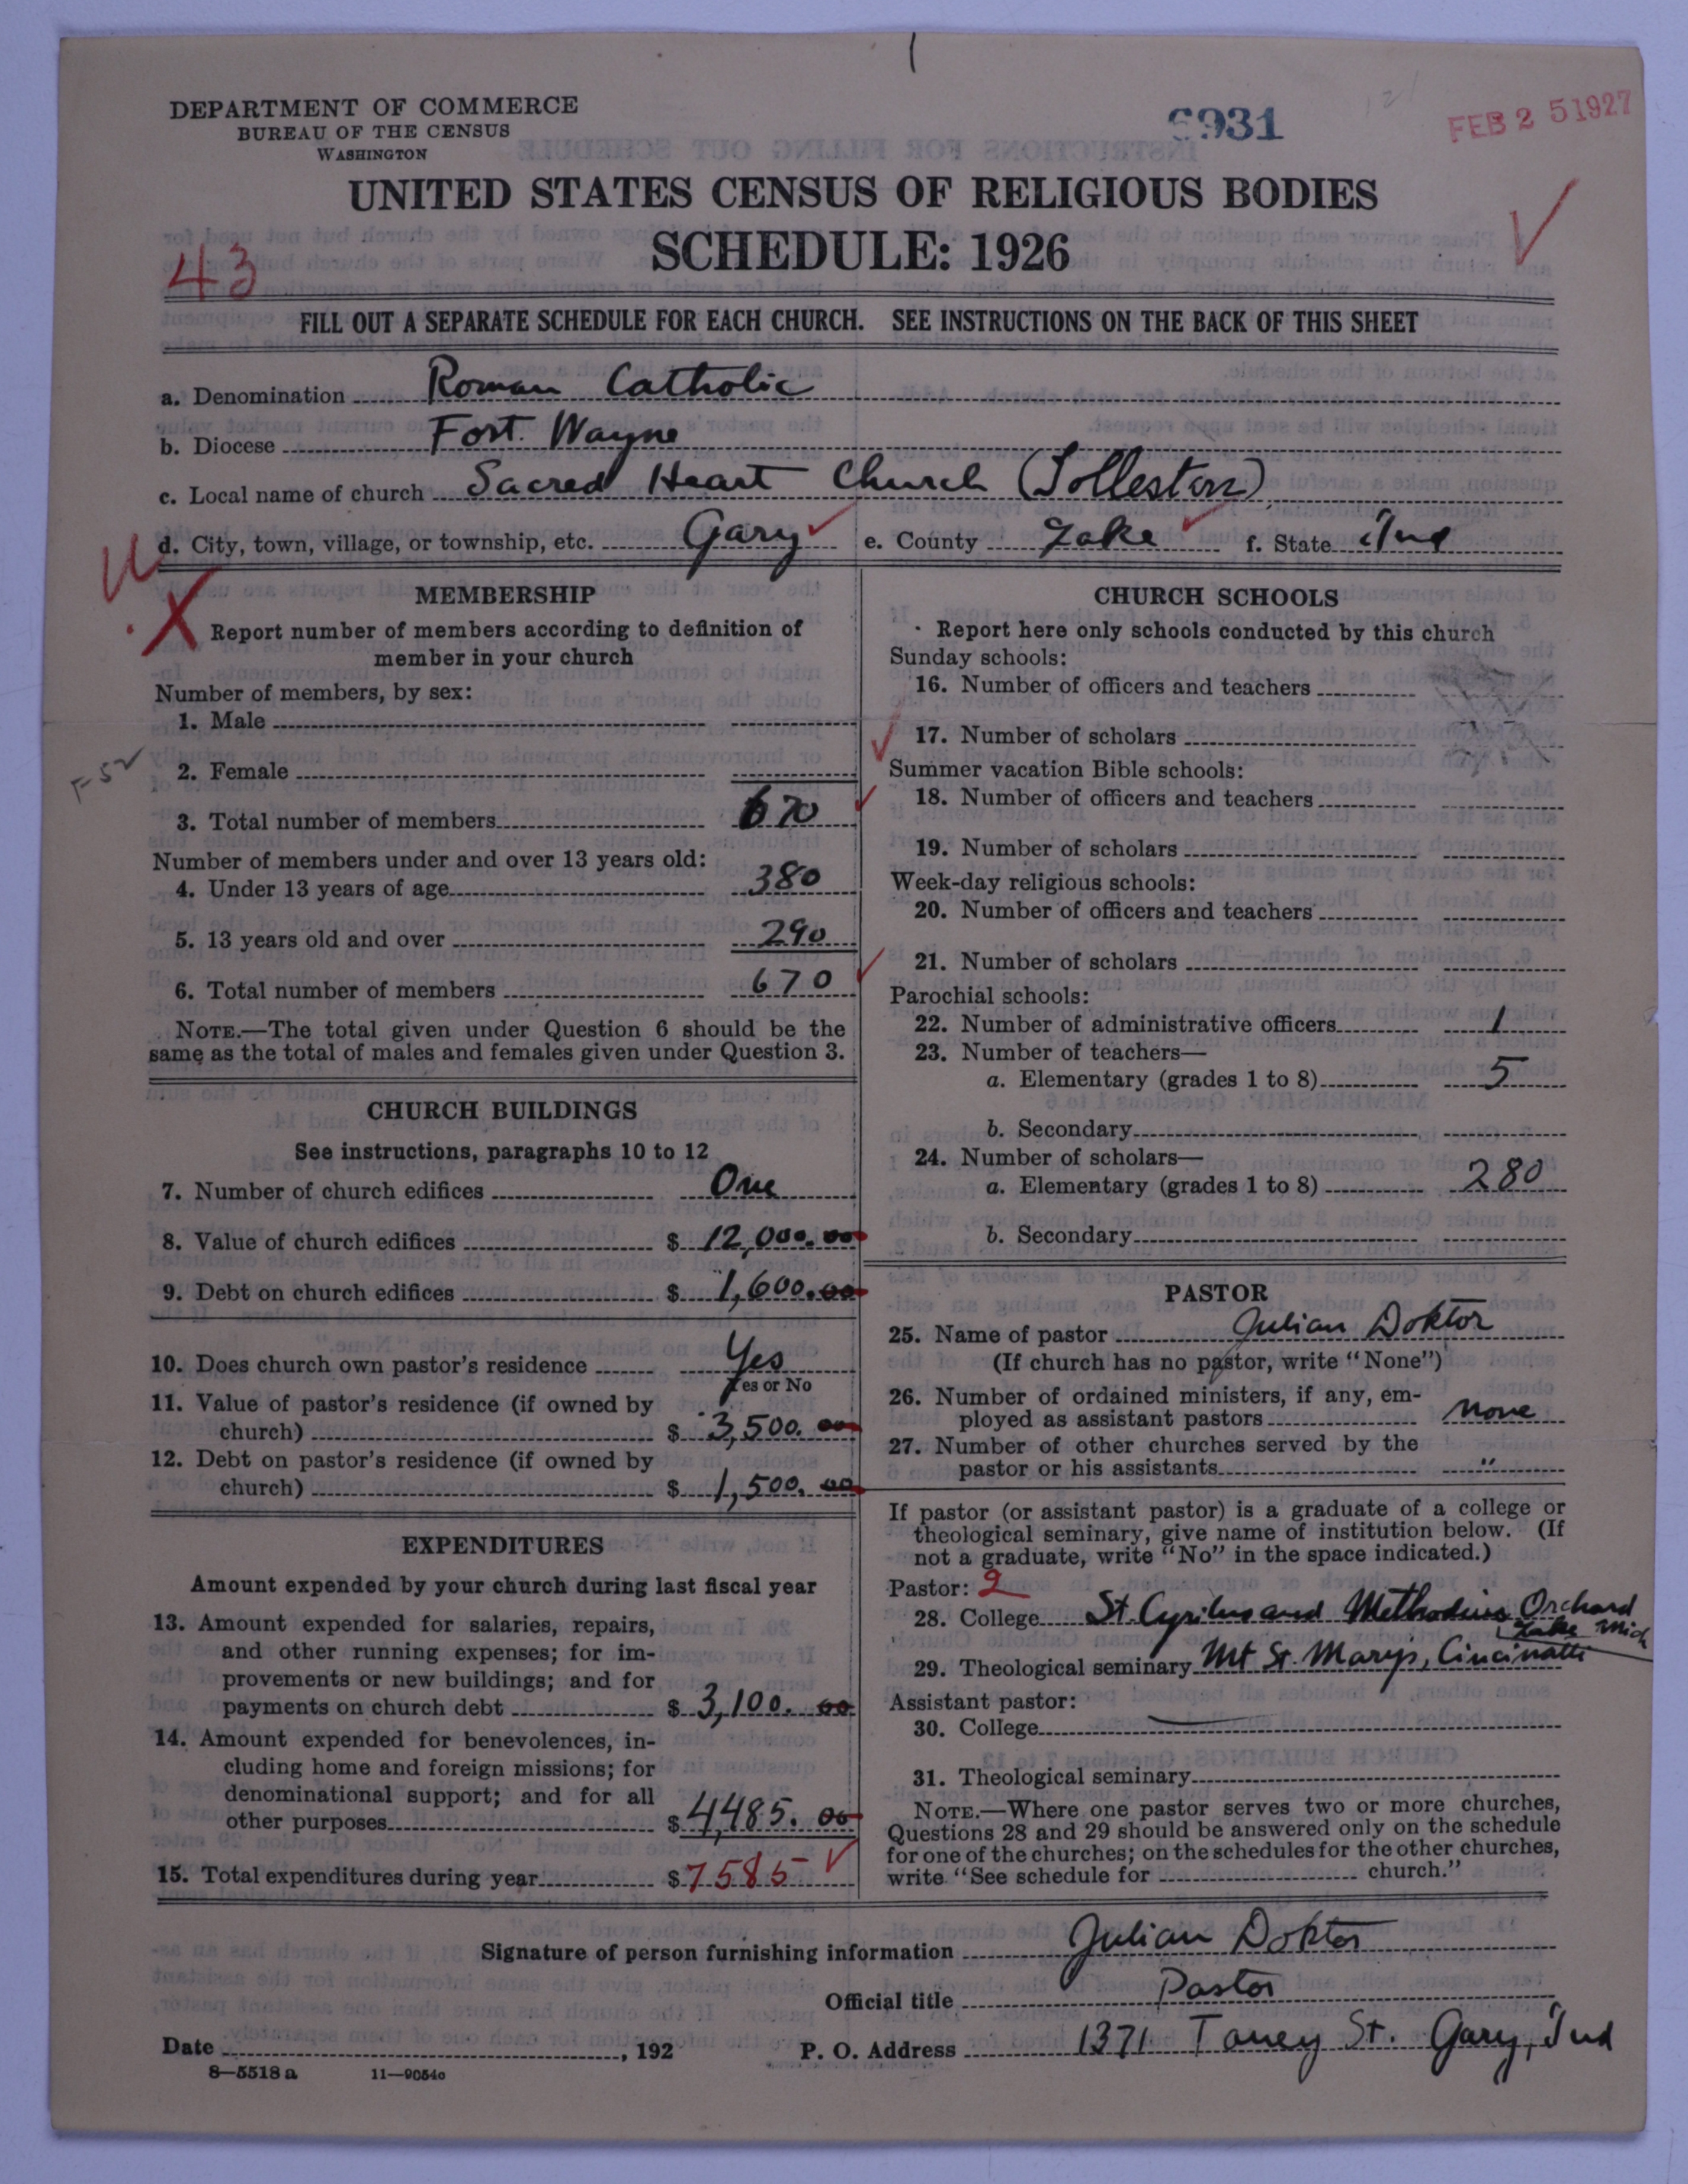 DEPARTMENT OF COMMERCE
BUREAU OF THE CENSUS
WASHINGTON
6931
FEB 25 1927
UNITED STATES CENSUS OF RELIGIOUS BODIES
43
SCHEDULE: 1926
FILL OUT A SEPARATE SCHEDULE FOR EACH CHURCH. SEE INSTRUCTIONS ON THE BACK OF THIS SHEET
a. Denomination Roman Catholic
b. Diocese Fort. Wayne
c. Local name of church Sacred Heart Church (Tolleston)
d. City, town, village, or township, etc. Gary e. County Lake f. State Ind
MEMBERSHIP
Report number of members according to definition of
member in your church
Number of members, by sex:
1. Male
2. Female
3. Total number of members 670
Number of members under and over 13 years old:
4. Under 13 years of age 380
5. 13 years old and over 290
6. Total number of members 670
NOTE.—The total given under Question 6 should be the
same as the total of males and females given under Question 3.
CHURCH BUILDINGS
See instructions, paragraphs 10 to 12
7. Number of church edifices One
8. Value of church edifices $ 12,000.00
9. Debt on church edifices $ 1,600.00
10. Does church own pastor's residence Yes
Yes or No
11. Value of pastor's residence (if owned by
church) $ 3,500.00
12. Debt on pastor's residence (if owned by
church) $ 1,500.00
EXPENDITURES
Amount expended by your church during last fiscal year
13. Amount expended for salaries, repairs,
and other running expenses; for im-
provements or new buildings; and for
payments on church debt $ 3,100.00
14. Amount expended for benevolences, in-
cluding home and foreign missions; for
denominational support; and for all
other purposes $ 4485.00
15. Total expenditures during year $ 7585
CHURCH SCHOOLS
Report here only schools conducted by this church
Sunday schools:
16. Number of officers and teachers
17. Number of scholars
Summer vacation Bible schools:
18. Number of officers and teachers
19. Number of scholars
Week-day religious schools:
20. Number of officers and teachers
21. Number of scholars
Parochial schools:
22. Number of administrative officers 1
23. Number of teachers—
a. Elementary (grades 1 to 8) 5
b. Secondary
24. Number of scholars—
a. Elementary (grades 1 to 8) 280
b. Secondary
PASTOR
25. Name of pastor Julian Doktor
(If church has no pastor, write "None")
26. Number of ordained ministers, if any, em-
ployed as assistant pastors None
27. Number of other churches served by the
pastor or his assistants "
If pastor (or assistant pastor) is a graduate of a college or
theological seminary, give name of institution below. (If
not a graduate, write "No" in the space indicated.)
Pastor: 2
28. College St. Cyrilus and Methodius Orchard
Lake Mich
29. Theological seminary Mt St. Marys, Cincinatti
Assistant pastor:
30. College
31. Theological seminary
NOTE.—Where one pastor serves two or more churches,
Questions 28 and 29 should be answered only on the schedule
for one of the churches; on the schedules for the other churches,
write "See schedule for church."
Signature of person furnishing information Julian Doktor
Official title Pastor
Date , 192 P. O. Address 1371 Taney St. Gary, Ind
8—5518 a 11—9054c